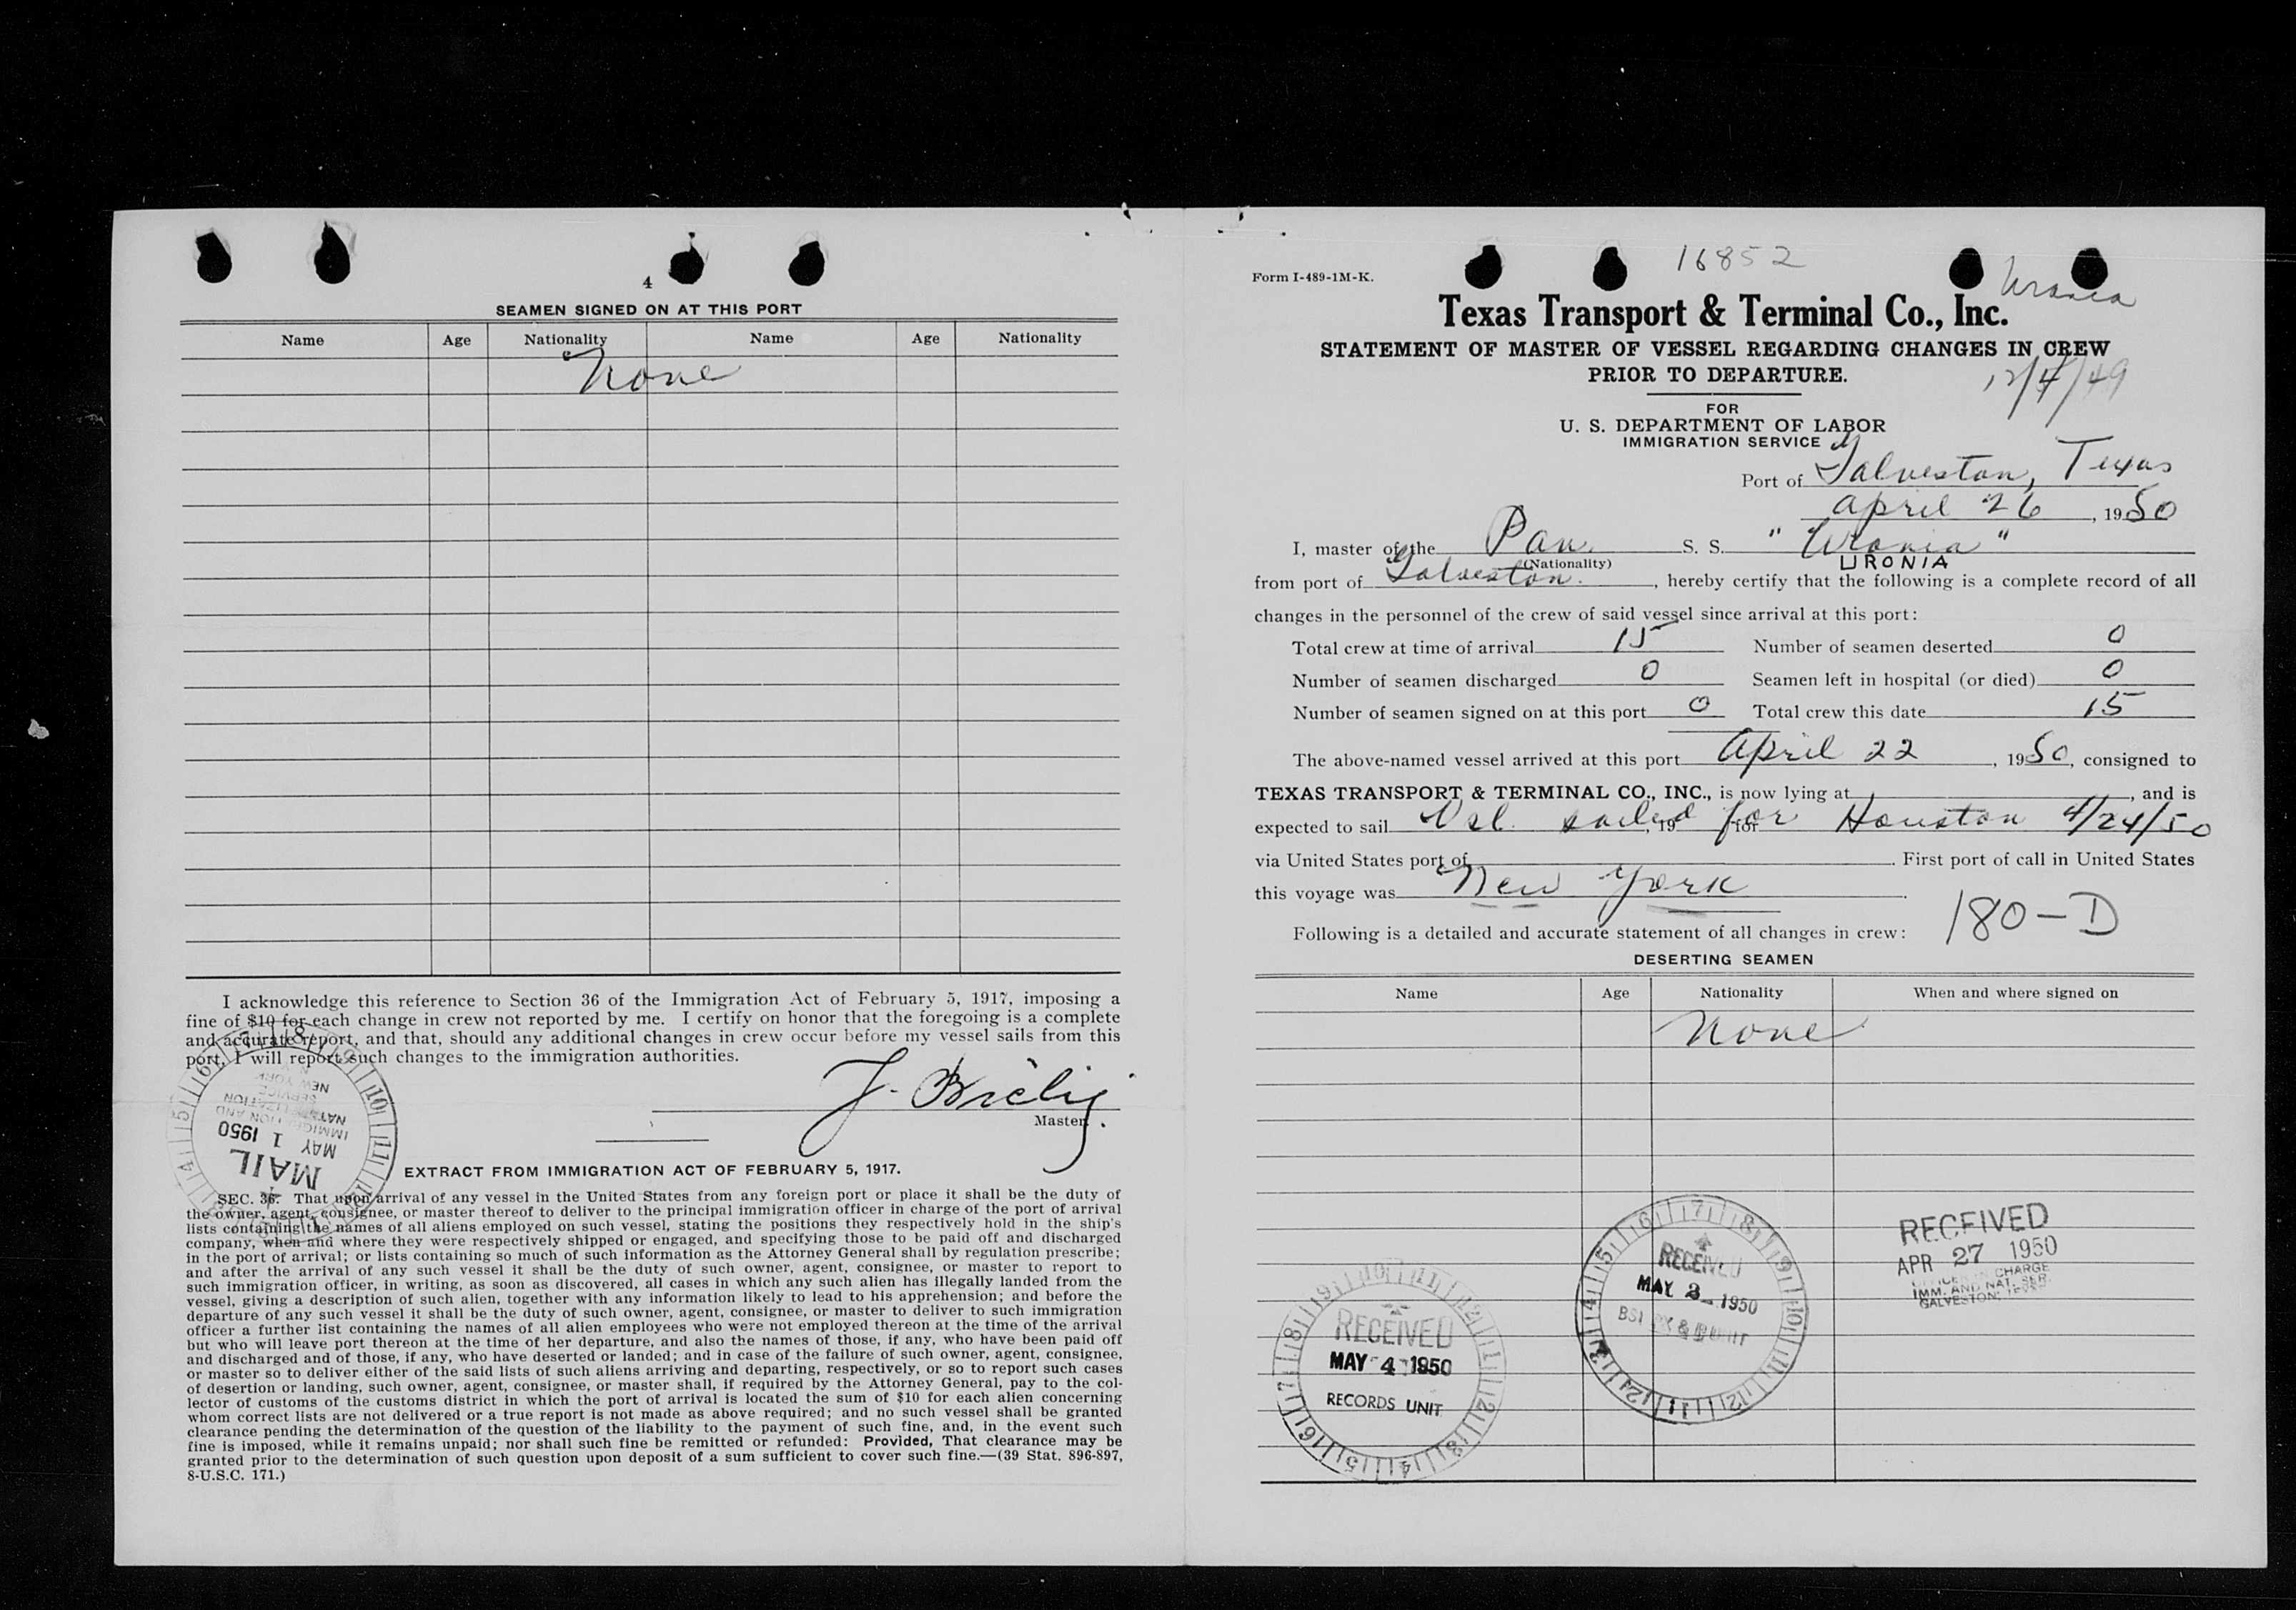 4
SEAMEN SIGNED ON AT THIS PORT
Name Age Nationality Name Age Nationality
None
I acknowledge this reference to Section 36 of the Immigration Act of February 5, 1917, imposing a
fine of $10 for each change in crew not reported by me. I certify on honor that the foregoing is a complete
and accurate report, and that, should any additional changes in crew occur before my vessel sails from this
port, I will report such changes to the immigration authorities.
J.
Master.
MAIL
MAY 1 1950
IMMIGRATION AND
NATURALIZATION
SERVICE
NEW YORK
EXTRACT FROM IMMIGRATION ACT OF FEBRUARY 5, 1917.
SEC. 36. That upon arrival of any vessel in the United States from any foreign port or place it shall be the duty of
the owner, agent, consignee, or master thereof to deliver to the principal immigration officer in charge of the port of arrival
lists containing the names of all aliens employed on such vessel, stating the positions they respectively hold in the ship's
company, when and where they were respectively shipped or engaged, and specifying those to be paid off and discharged
in the port of arrival; or lists containing so much of such information as the Attorney General shall by regulation prescribe;
and after the arrival of any such vessel it shall be the duty of such owner, agent, consignee, or master to report to
such immigration officer, in writing, as soon as discovered, all cases in which any such alien has illegally landed from the
vessel, giving a description of such alien, together with any information likely to lead to his apprehension; and before the
departure of any such vessel it shall be the duty of such owner, agent, consignee, or master to deliver to such immigration
officer a further list containing the names of all alien employees who were not employed thereon at the time of the arrival
but who will leave port thereon at the time of her departure, and also the names of those, if any, who have been paid off
and discharged and of those, if any, who have deserted or landed; and in case of the failure of such owner, agent, consignee,
or master so to deliver either of the said lists of such aliens arriving and departing, respectively, or so to report such cases
of desertion or landing, such owner, agent, consignee, or master shall, if required by the Attorney General, pay to the col-
lector of customs of the customs district in which the port of arrival is located the sum of $10 for each alien concerning
whom correct lists are not delivered or a true report is not made as above required; and no such vessel shall be granted
clearance pending the determination of the question of the liability to the payment of such fine, and, in the event such
fine is imposed, while it remains unpaid; nor shall such fine be remitted or refunded: Provided, That clearance may be
granted prior to the determination of such question upon deposit of a sum sufficient to cover such fine.—(39 Stat. 896-897,
8-U.S.C. 171.)
16852
Urania
Form I-489-1M-K.
Texas Transport & Terminal Co., Inc.
STATEMENT OF MASTER OF VESSEL REGARDING CHANGES IN CREW
PRIOR TO DEPARTURE.
12/4/49
FOR
U. S. DEPARTMENT OF LABOR
IMMIGRATION SERVICE
Port of Galveston, Texas
April 26, 1950
I, master of the Pan. S. S. "Urania"
(Nationality) URONIA
from port of Galveston., hereby certify that the following is a complete record of all
changes in the personnel of the crew of said vessel since arrival at this port:
Total crew at time of arrival 15 Number of seamen deserted 0
Number of seamen discharged 0 Seamen left in hospital (or died) 0
Number of seamen signed on at this port 0 Total crew this date 15
The above-named vessel arrived at this port April 22, 1950, consigned to
TEXAS TRANSPORT & TERMINAL CO., INC., is now lying at , and is
expected to sail Vsl. sailed, 19 for for Houston 4/24/50
via United States port of . First port of call in United States
this voyage was New York.
180-D
Following is a detailed and accurate statement of all changes in crew:
DESERTING SEAMEN
Name Age Nationality When and where signed on
None
RECEIVED
APR 27 1950
OFFICER IN CHARGE
IMM. AND NAT. SER.
GALVESTON, TEXAS
RECEIVED
MAY 3 1950
RECEIVED
MAY 4 1950
RECORDS UNIT